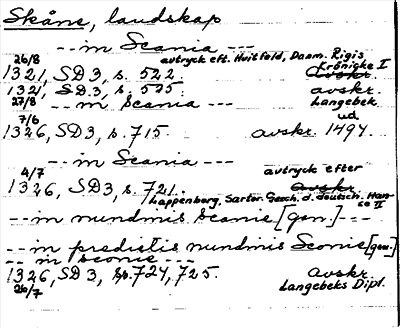 Skåne, landskap
-- in Scania ---
26/8 avtryck eft. Huitfeld, Danm. Rigis Krönicke I
1321, SD3, s. 522. avskr.
1321, SD3, s. 525. avskr.
27/8 -- in scania --- Langebek
7/6 ud.
1326, SD3, s. 715. avskr. 1494.
-- in Scania ---
4/7 avtryck efter
1326, SD3, s. 721. avskr.
Lappenberg, Sartor. Gesch. d. deutsch. Hanse II
-- in nundinis Scanie [gen.] ---
-- in predictis nundinis Sconie [gen.]
-- in sconie ---
1326, SD3, s. 724, 725. Avskr.
26/7 Langebeks Dipl.